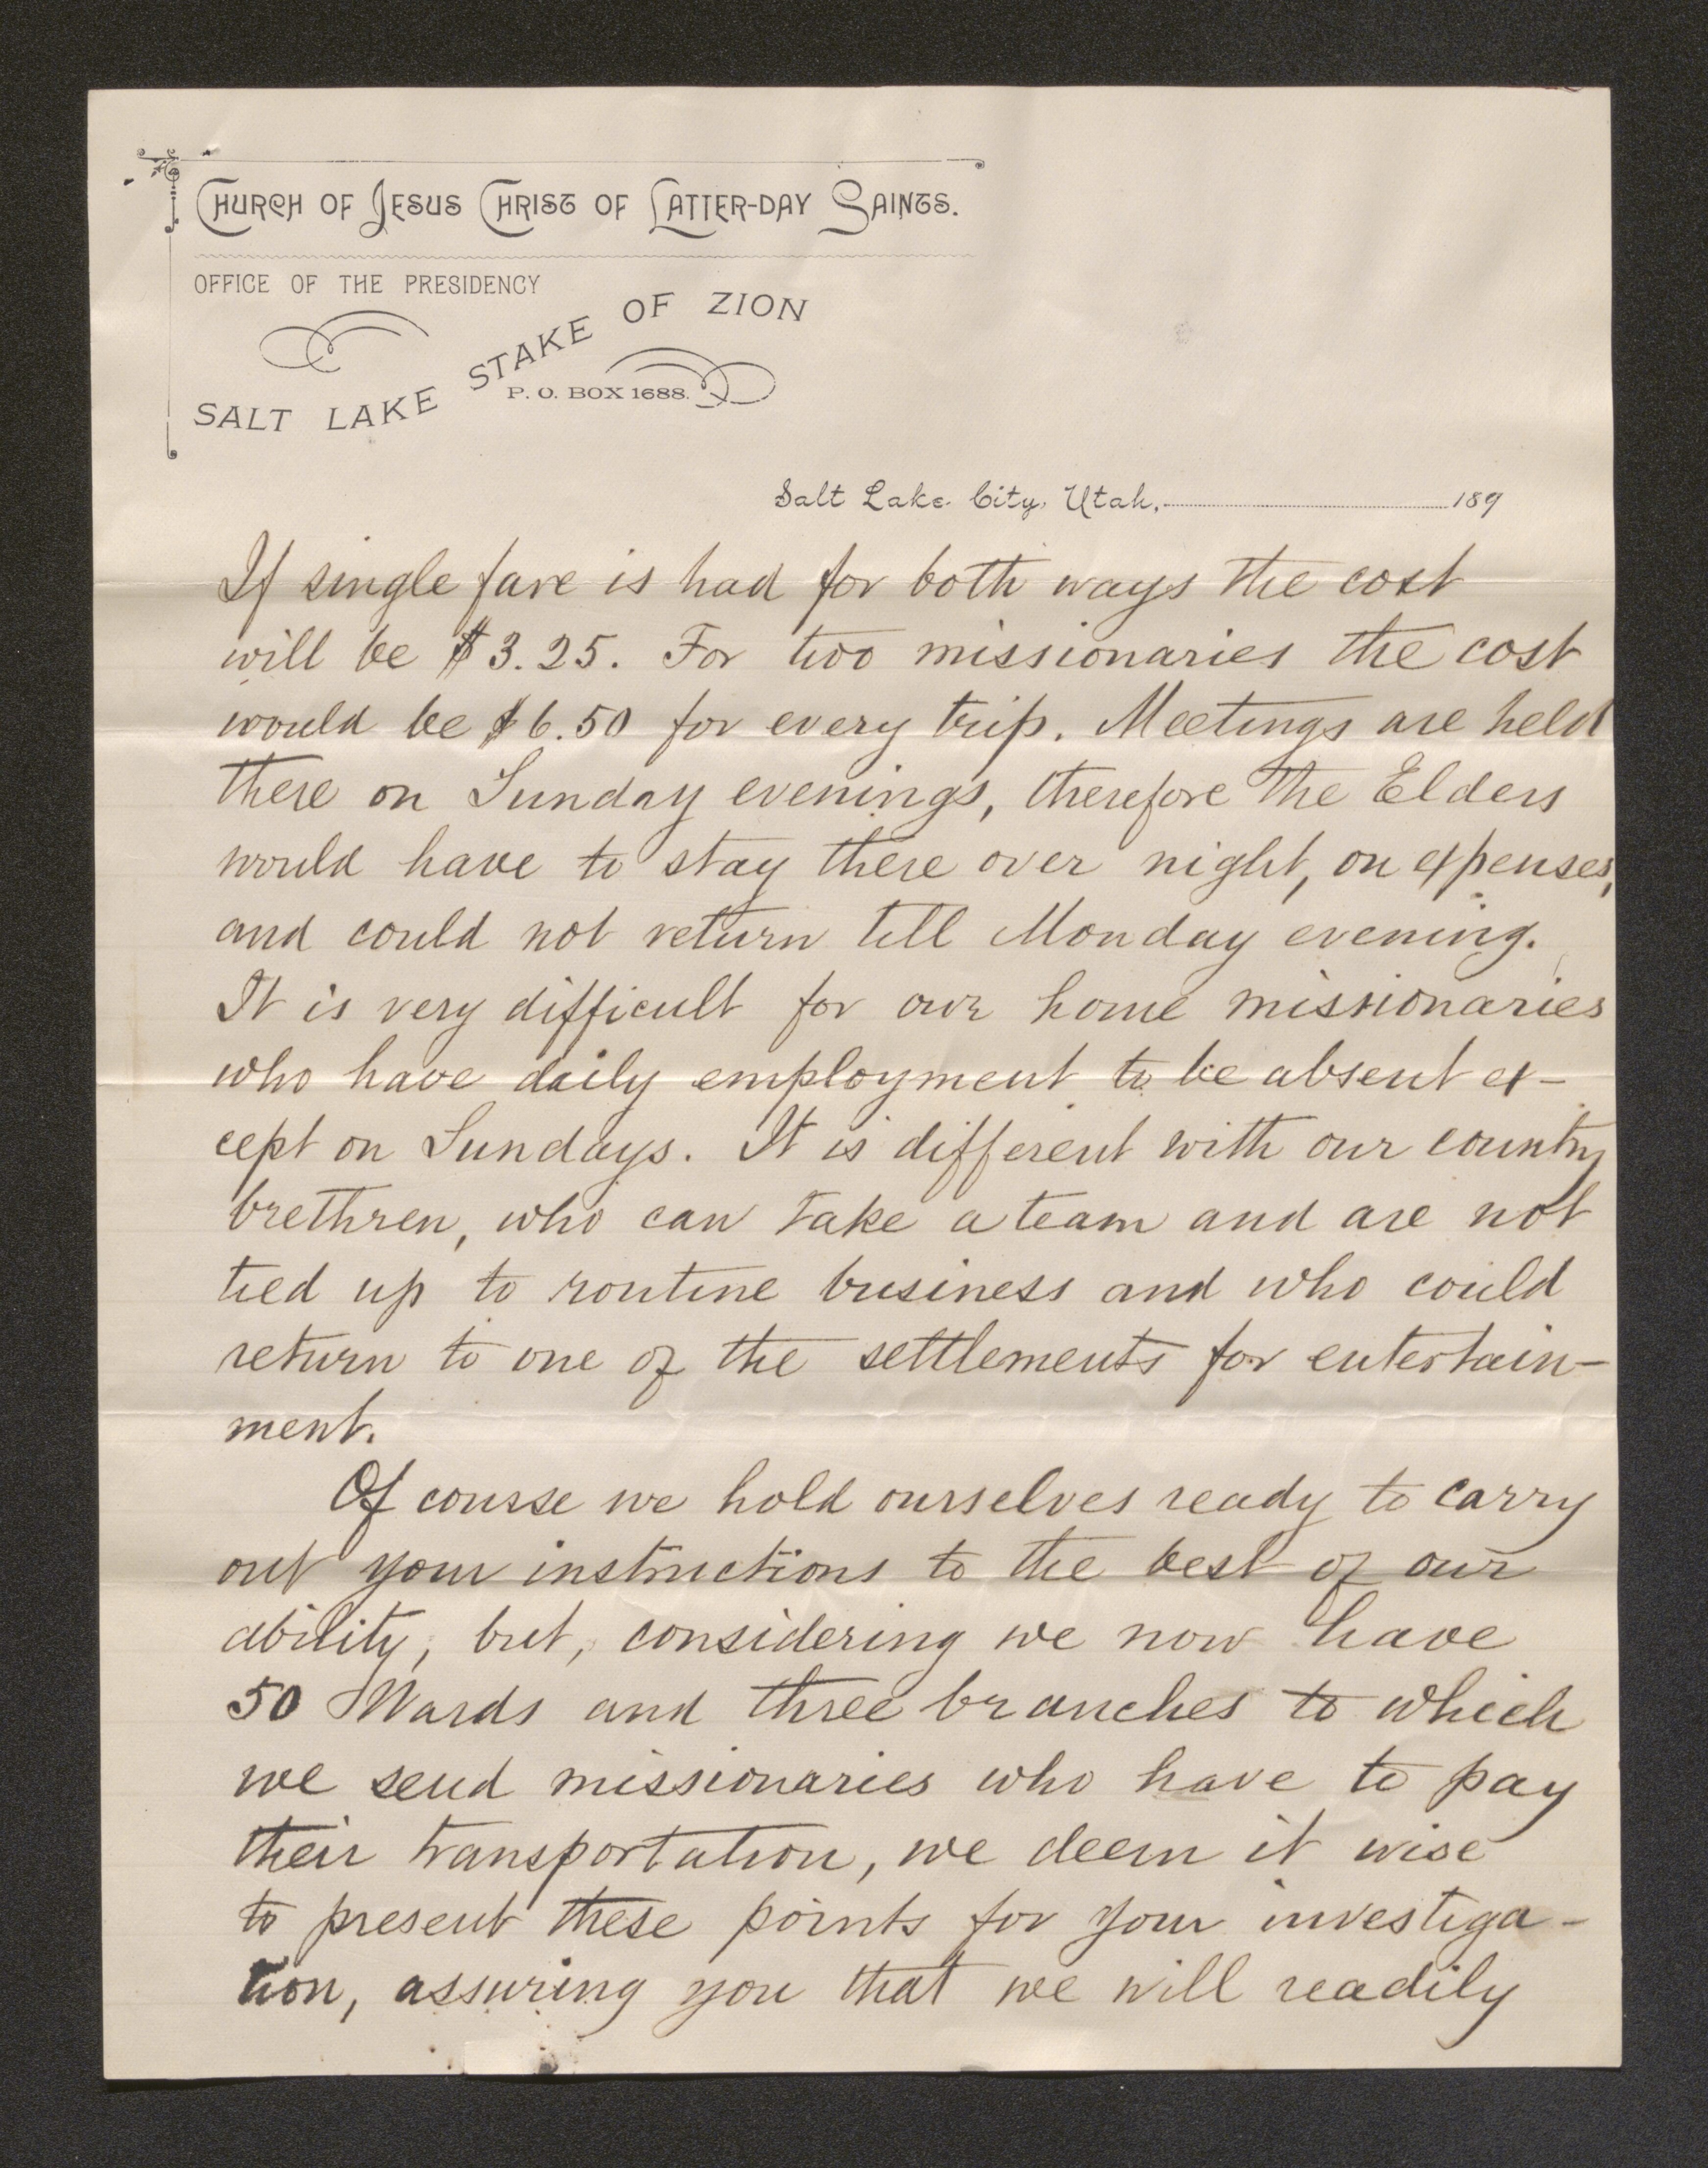 CHURCH OF JESUS CHRIST OF LATTER-DAY SAINTS.
OFFICE OF THE PRESIDENCY
SALT LAKE STAKE OF ZION
P. O. BOX 1688.
Salt Lake City, Utah, 189
If single fare is had for both ways the cost
will be $3.25. For two missionaries the cost
would be $6.50 for every trip. Meetings are held
there on Sunday evenings, therefore the Elders
would have to stay there over night, on expenses,
and could not return till Monday evening.
It is very difficult for our home missionaries
who have daily employment to be absent ex-
cept on Sundays. It is different with our country
brethren, who can take a team and are not
tied up to routine business and who could
return to one of the settlements for entertain-
ment.
Of course we hold ourselves ready to carry
out your instructions to the best of our
ability, but, considering we now have
50 Wards and three branches to which
we send missionaries who have to pay
their transportation, we deem it wise
to present these points for your investiga-
tion, assuring you that we will readily